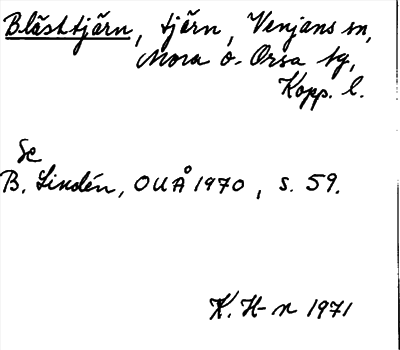 Blästtjärn, tjärn, Venjans sn,
Mora o. Orsa tg,
Kopp. l.
Se
B. Lindén, OUÅ 1970, s. 59.
K. H-n 1971